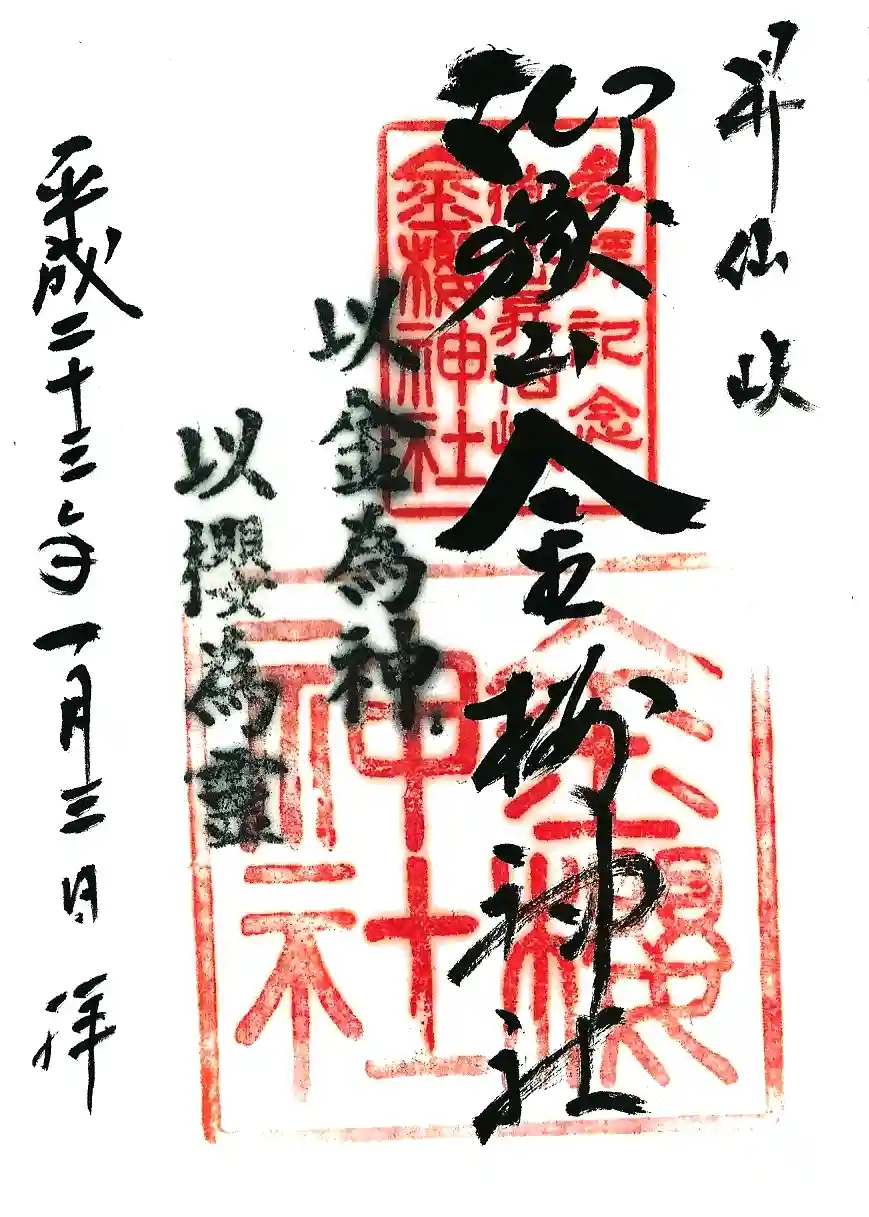 昇仙峡
御嶽山金櫻神社
参拝記念
金櫻神社
以金為神
以櫻為霊
金櫻
神社
平成二十三年一月三日 拝